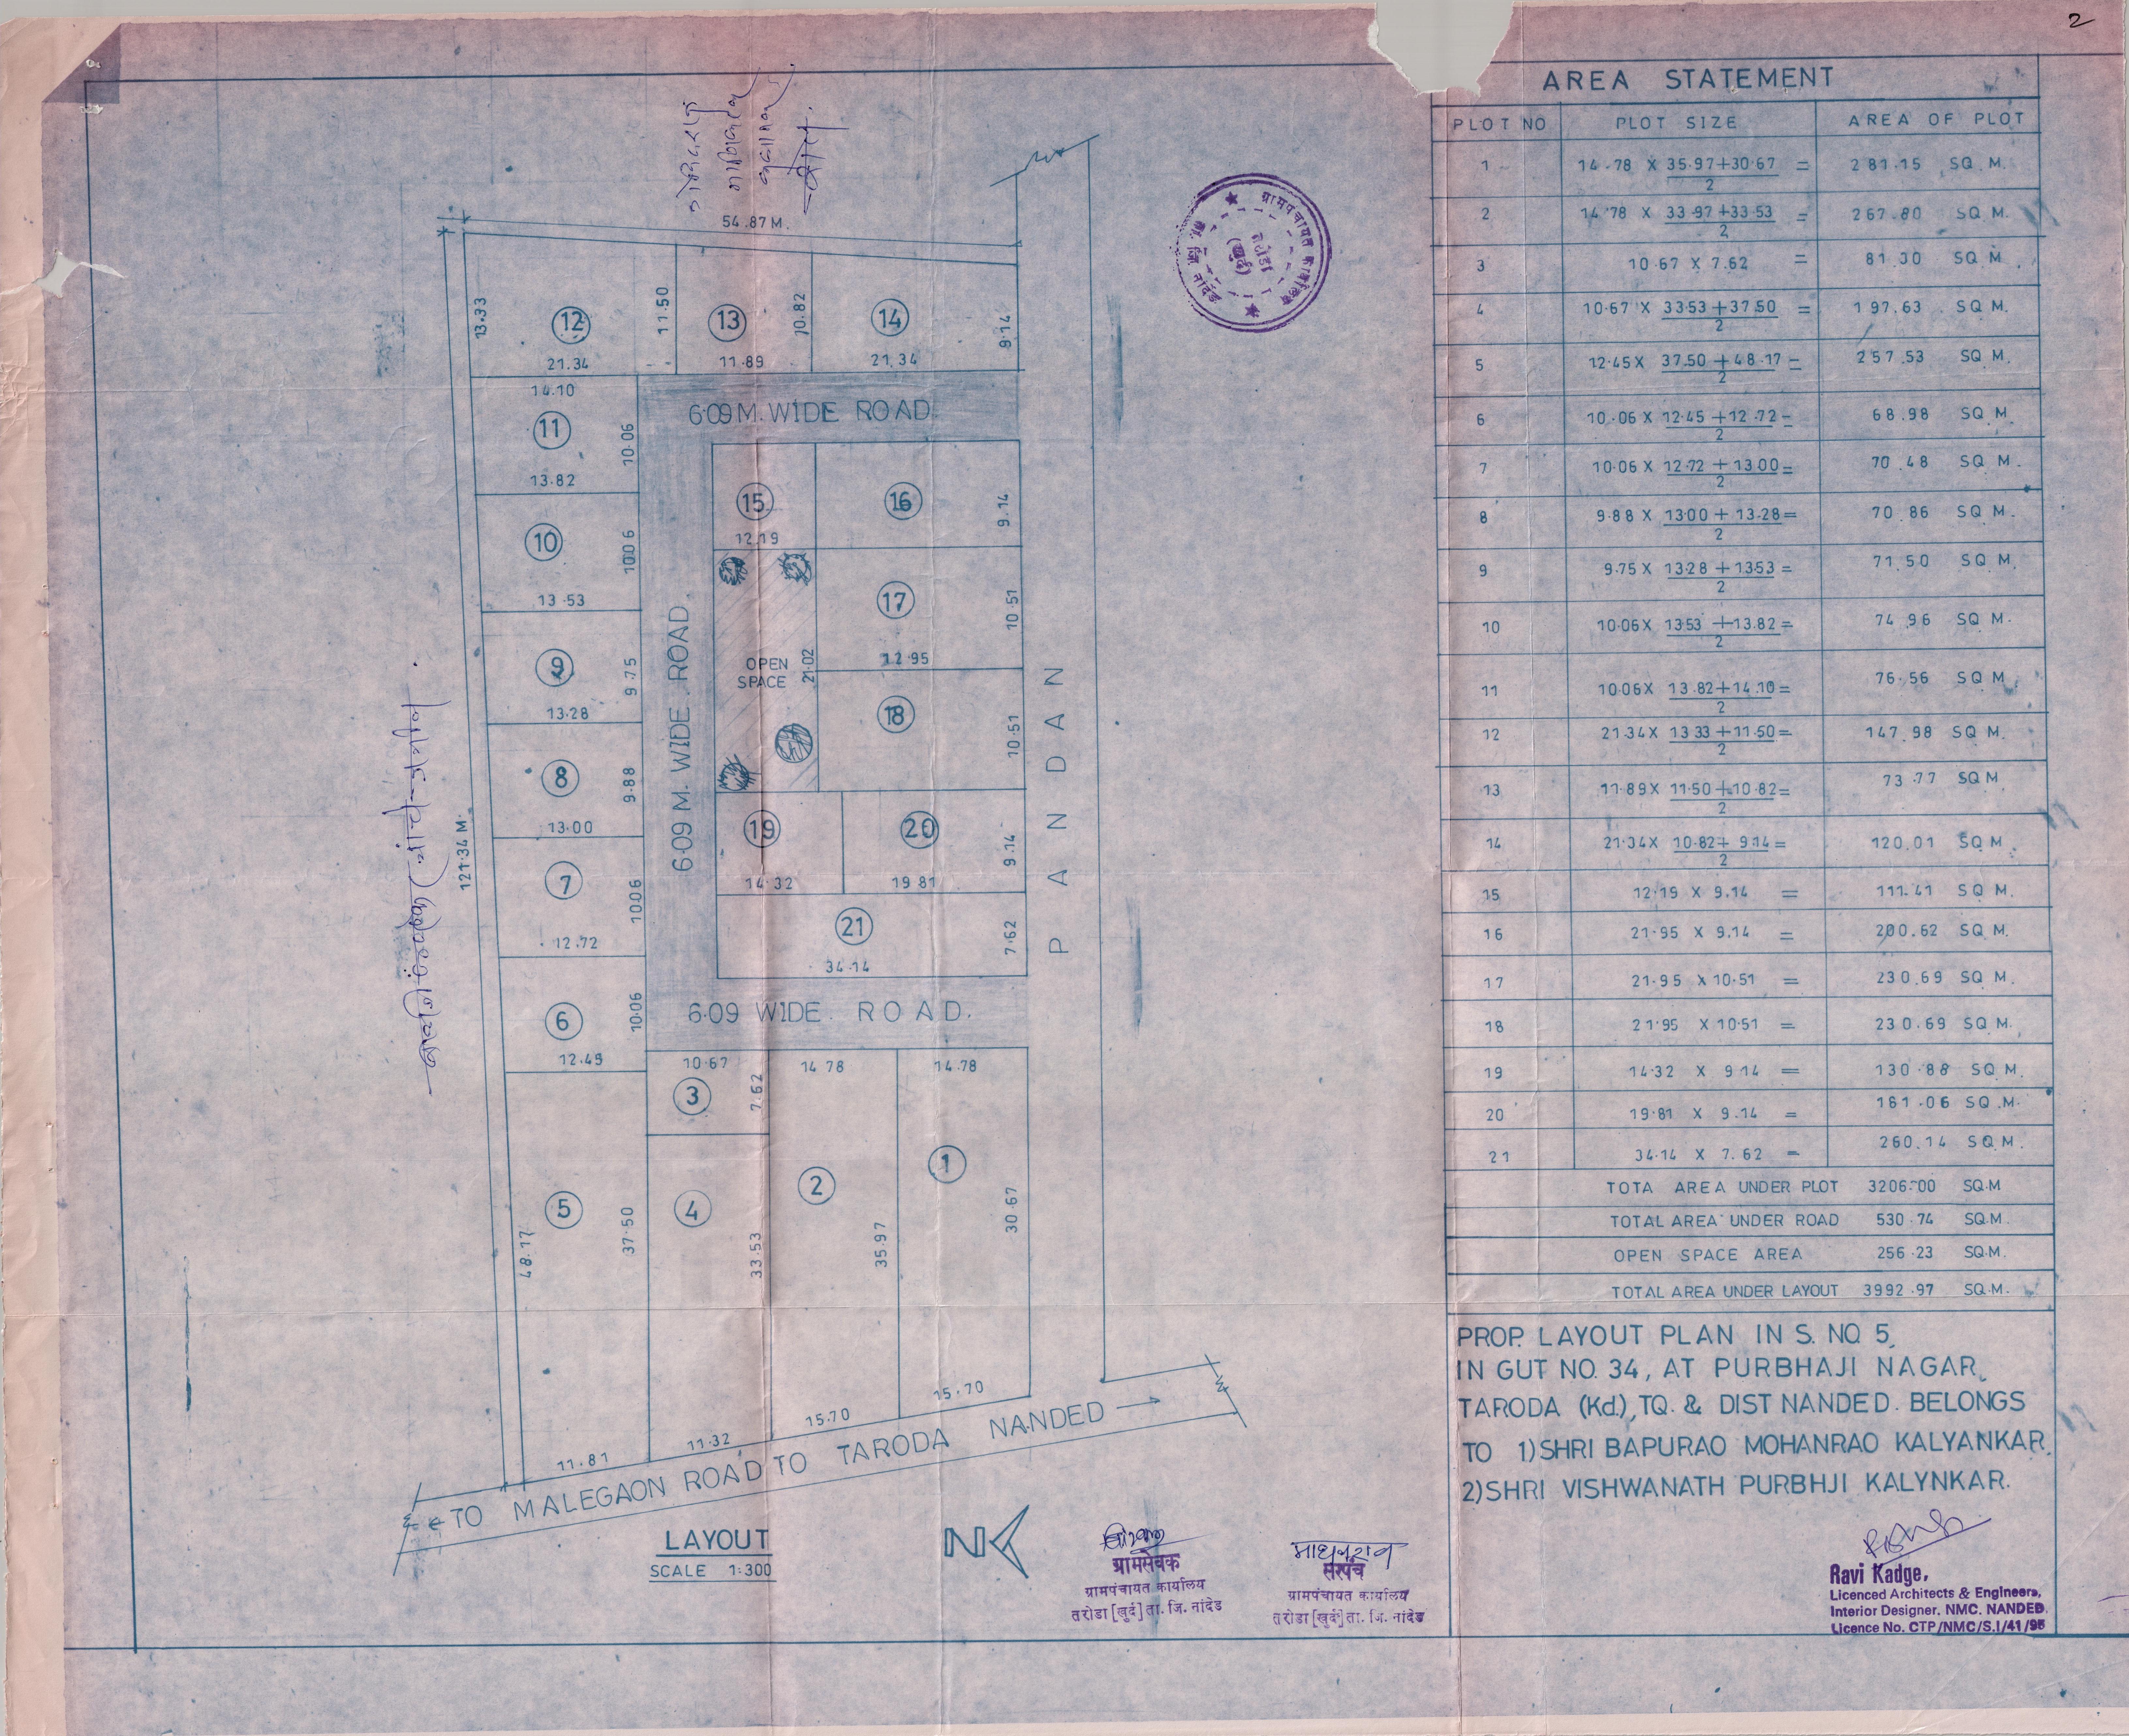 2
AREA STATEMENT
PLOT NO PLOT SIZE AREA OF PLOT
1 14.78 X 35.97+30.67 / 2 = 281.15 SQ.M.
2 14.78 X 33.97+33.53 / 2 = 267.80 SQ.M.
3 10.67 X 7.62 = 81.30 SQ.M.
4 10.67 X 33.53+37.50 / 2 = 197.63 SQ.M.
5 12.45 X 37.50+48.17 / 2 = 257.53 SQ.M.
6 10.06 X 12.45+12.72 / 2 = 68.98 SQ.M.
7 10.06 X 12.72+13.00 / 2 = 70.48 SQ.M.
8 9.88 X 13.00+13.28 / 2 = 70.86 SQ.M.
9 9.75 X 13.28+13.53 / 2 = 71.50 SQ.M.
10 10.06 X 13.53+13.82 / 2 = 74.96 SQ.M.
11 10.06 X 13.82+14.10 / 2 = 76.56 SQ.M.
12 21.34 X 13.33+11.50 / 2 = 147.98 SQ.M.
13 11.89 X 11.50+10.82 / 2 = 73.77 SQ.M.
14 21.34 X 10.82+9.14 / 2 = 120.01 SQ.M.
15 12.19 X 9.14 = 111.41 SQ.M.
16 21.95 X 9.14 = 200.62 SQ.M.
17 21.95 X 10.51 = 230.69 SQ.M.
18 21.95 X 10.51 = 230.69 SQ.M.
19 14.32 X 9.14 = 130.88 SQ.M.
20 19.81 X 9.14 = 181.06 SQ.M.
21 34.14 X 7.62 = 260.14 SQ.M.
TOTA AREA UNDER PLOT 3206.00 SQ.M
TOTAL AREA UNDER ROAD 530.74 SQ.M.
OPEN SPACE AREA 256.23 SQ.M.
TOTAL AREA UNDER LAYOUT 3992.97 SQ.M.
PROP. LAYOUT PLAN IN S. NO. 5,
IN GUT NO. 34, AT PURBHAJI NAGAR,
TARODA (Kd.), TQ. & DIST NANDED. BELONGS
TO 1) SHRI BAPURAO MOHANRAO KALYANKAR.
2) SHRI VISHWANATH PURBHJI KALYNKAR.
Ravi Kadge,
Licenced Architects & Engineers,
Interior Designer. NMC. NANDED.
Licence No. CTP/NMC/S.I/41/95
54.87 M.
13.33
12
21.34
11.50
13
11.89
10.82
14
21.34
9.14
6.09 M. WIDE ROAD.
14.10
11
10.06
13.82
10
10.06
13.53
9
9.75
13.28
8
9.88
13.00
7
10.06
12.72
6
10.06
12.45
121.34 M.
6.09 M. WIDE. ROAD.
15
12.19
16
9.14
17
10.51
12.95
OPEN
SPACE
21.02
18
10.51
19
14.32
20
19.81
9.14
21
34.14
7.62
PANDAN
6.09 WIDE. ROAD.
10.67
3
7.62
14.78
14.78
5
48.17
37.50
4
33.53
2
35.97
1
30.67
11.81
11.32
15.70
15.70
TO MALEGAON ROAD TO TARODA NANDED
LAYOUT
SCALE 1:300
N
ग्रामपंचायत कार्यालय
तरोडा
(खुर्द)
ता. जि. नांदेड
ग्रामसेवक
ग्रामपंचायत कार्यालय
तरोडा [खुर्द] ता. जि. नांदेड
माधवराव
सरपंच
ग्रामपंचायत कार्यालय
तरोडा [खुर्द] ता. जि. नांदेड